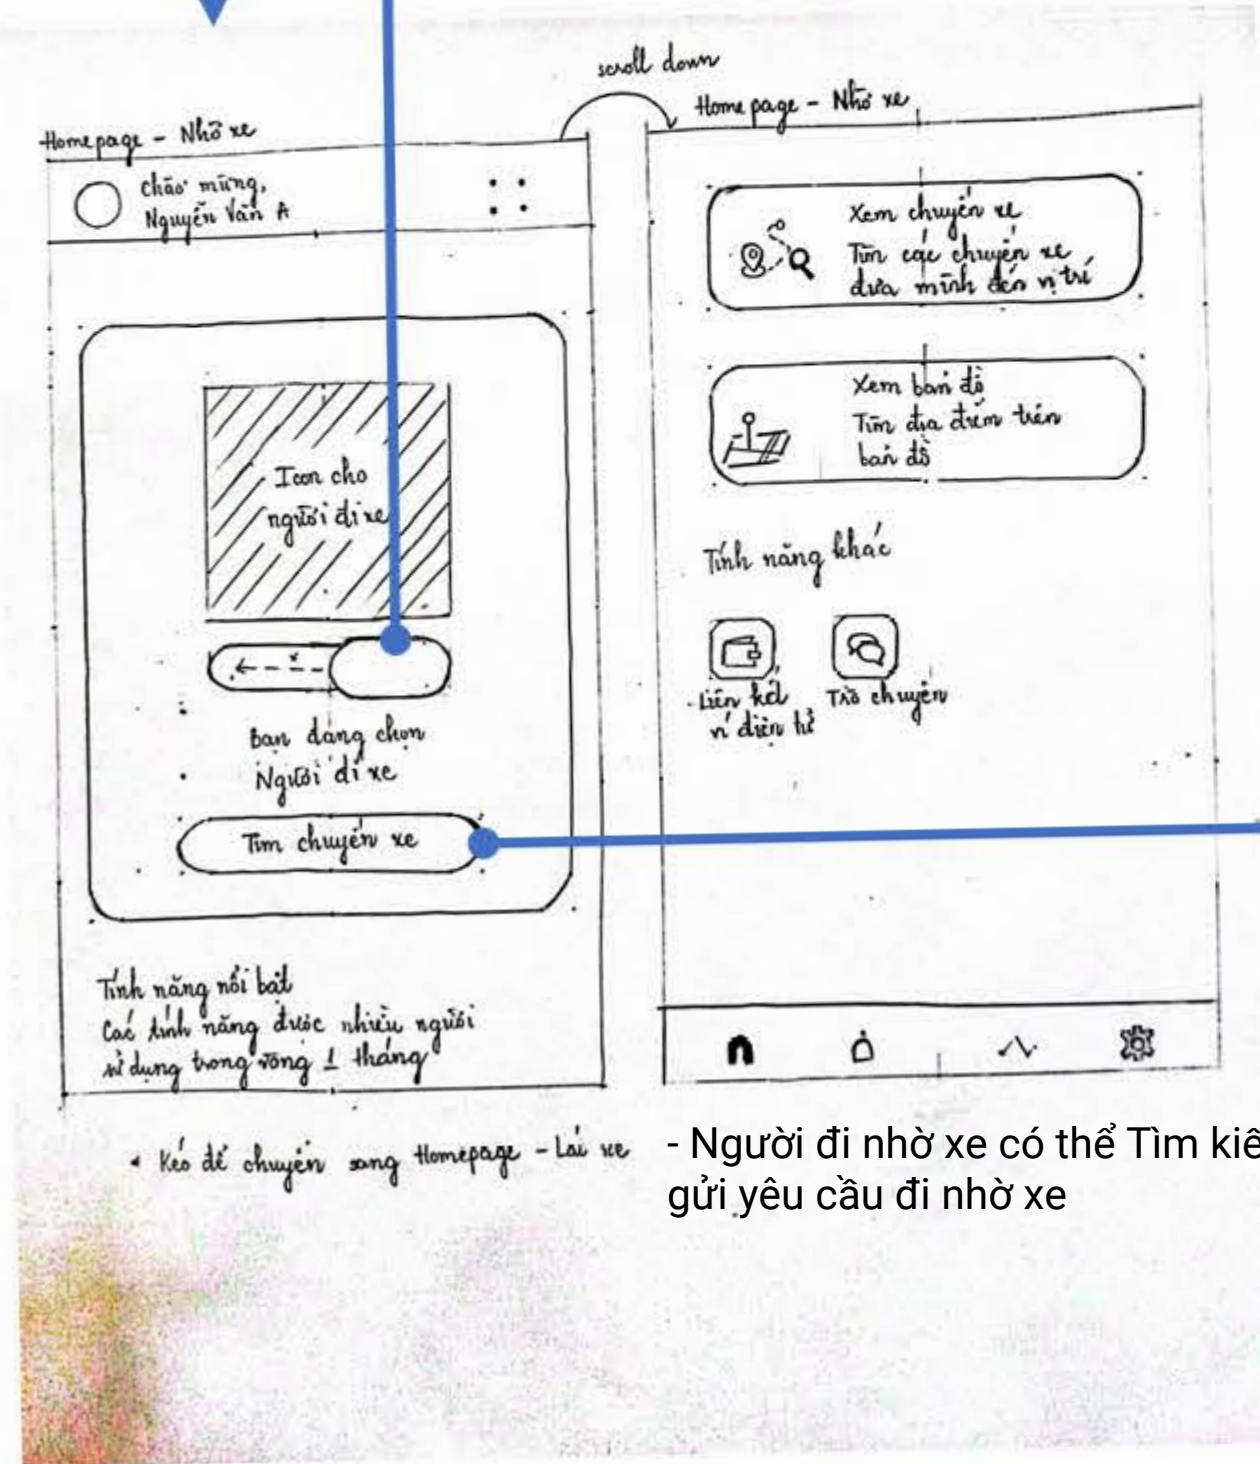 scroll down
Homepage - Nhờ xe
Chào mừng,
Nguyễn Văn A
Icon cho
người đi xe
Bạn đang chọn
Người đi xe
Tìm chuyến xe
Tính năng nổi bật
Các tính năng được nhiều người
sử dụng trong vòng 1 tháng
* Kéo để chuyển sang Homepage - Lái xe
Homepage - Nhờ xe
Xem chuyến xe
Tìm các chuyến xe
đưa mình đến vị trí
Xem bản đồ
Tìm địa điểm trên
bản đồ
Tính năng khác
Liên kết
ví điện tử
Trò chuyện
- Người đi nhờ xe có thể Tìm kiế
gửi yêu cầu đi nhờ xe